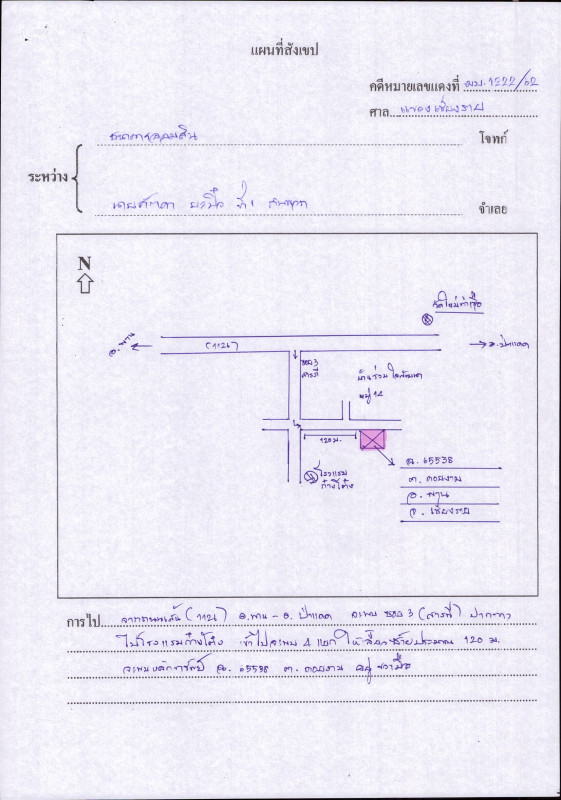 แผนที่สังเขป
คดีหมายเลขแดงที่ ผบ.1222/62
ศาล แขวงเชียงราย
ธนาคารออมสิน โจทก์
ระหว่าง
ที่ 1 จำเลย
N
วัดใหม่ท่าเรือ
อ.พาน
(1126)
อ.ป่าแดด
ซอย 3
หมู่ 14
120 ม.
โรงแรม
ก้างโต้ง
ฉ. 65538
ต. ดอยงาม
อ. พาน
จ. เชียงราย
การไป จากถนนเส้น (1126) อ.พาน - อ. ป่าแดด จะพบ ซอย 3
ไปโรงแรมก้างโต้ง เข้าไปจะพบ 4 แยก ให้เลี้ยวซ้ายประมาณ 120 ม.
จะพบหลักทรัพย์ ฉ. 65538 ต. ดอยงาม อยู่ขวามือ